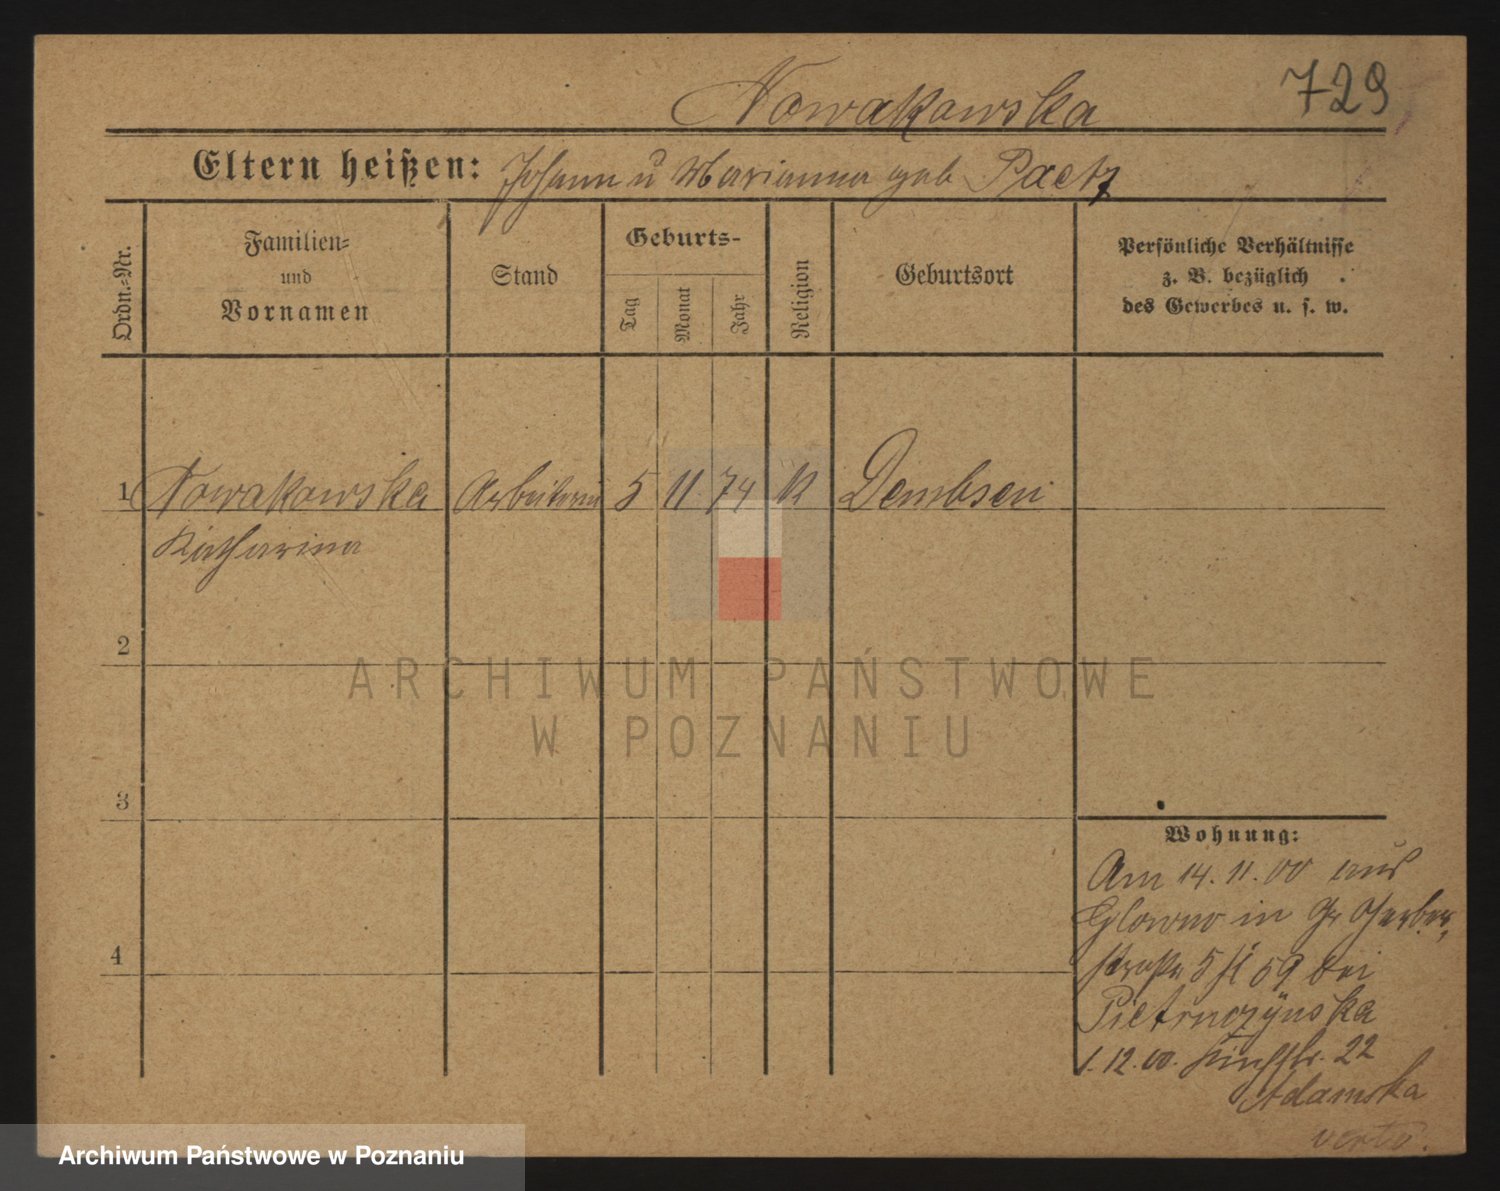 729
Nowakowska
Eltern heißen: Johann u Marianna geb Paetz
Ordn.=Nr.
Familien=
und
Vornamen
Stand
Geburts-
Tag
Monat
Jahr
Religion
Geburtsort
Persönliche Verhältnisse
z. B. bezüglich
des Gewerbes u. s. w.
1 Nowakowska Arbeiterin 5 11 74 K Dembsen
Katharina
2
3
4
Wohnung:
Am 14.11.00 aus
Glowno in Gr Gerber,
straße 5 59 bei
Pietruczynska
1.12.00. 22
Adamska
verte.
ARCHIWUM PAŃSTWOWE
W POZNANIU
Archiwum Państwowe w Poznaniu